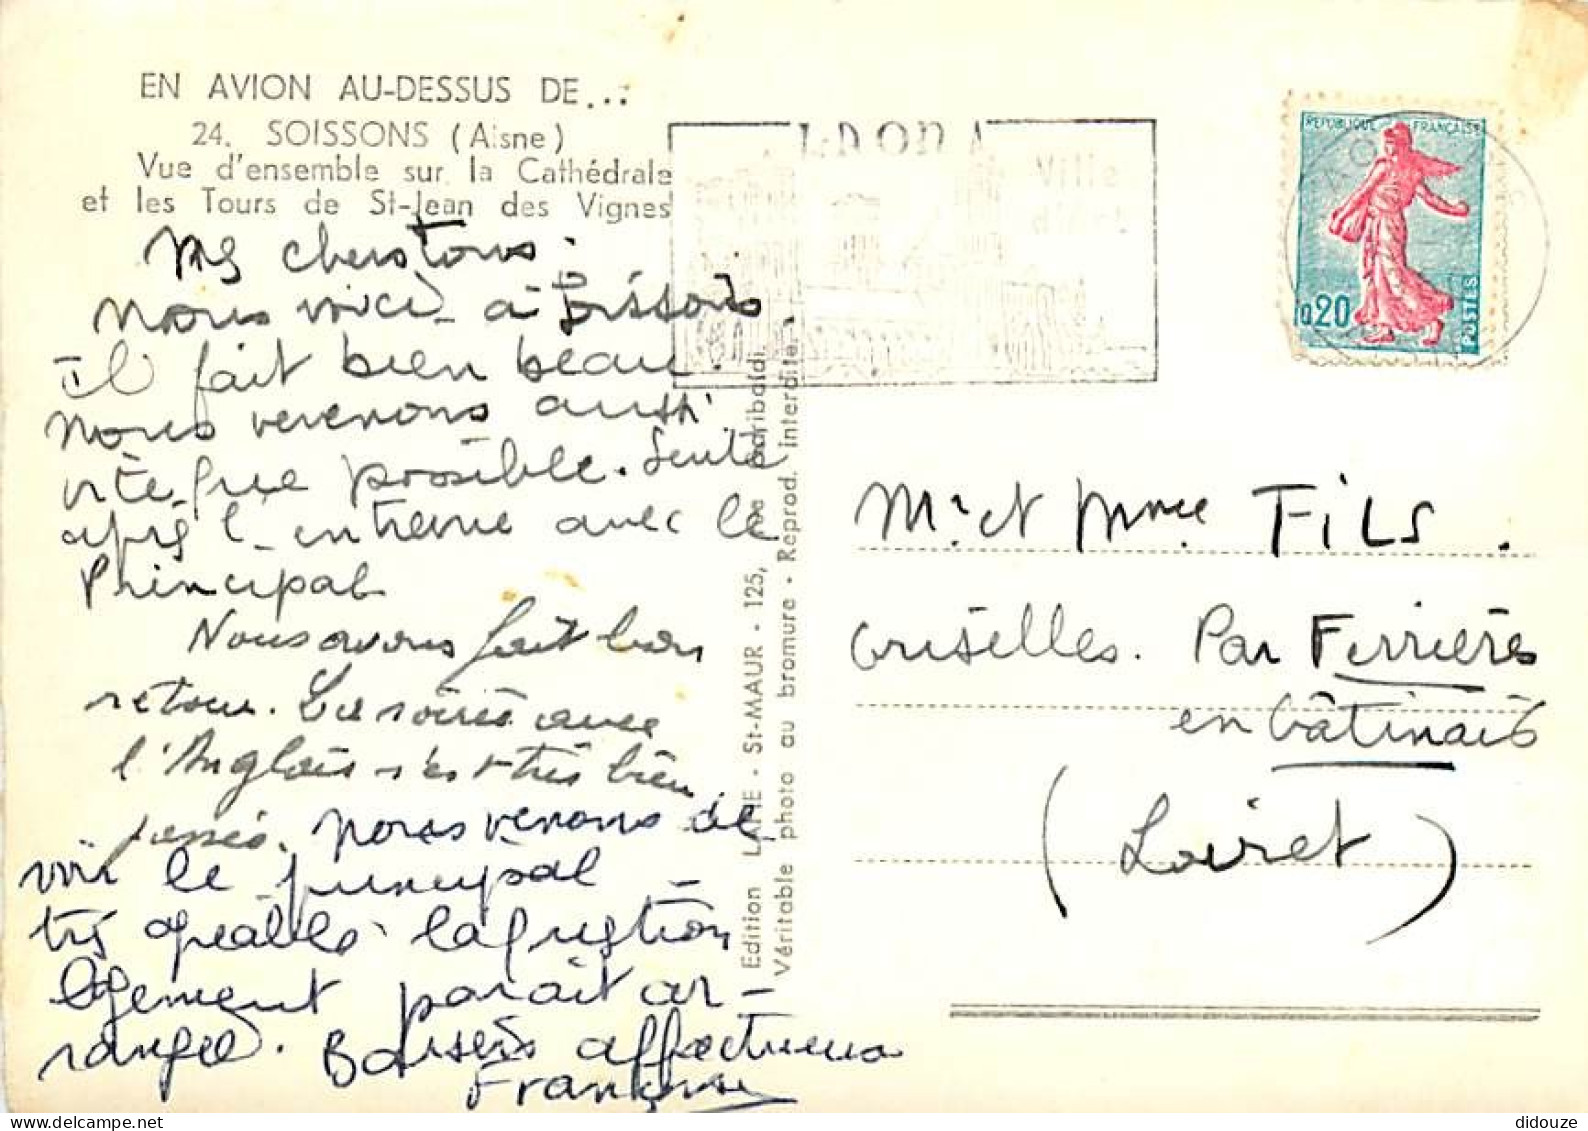 EN AVION AU-DESSUS DE...
24. SOISSONS (Aisne)
Vue d'ensemble sur la Cathédrale
et les Tours de St-Jean des Vignes
Mes chers tous.
Nous voici à Soissons.
Il fait bien beau.
Nous revenons aussi
vite que possible.
après l'entrevue avec le
Principal
Nous avons fait bon
retour. La soirée avec
l'Anglais s'est très bien
passée. Nous venons de
voir le principal
très agréable. la question
logement parait ar-
rangée. Baisers affectueux
Françoise
Edition LAPIE - St-MAUR - 125, rue Garibaldi.
Véritable photo au bromure - Reprod. interdite.
Ville
REPUBLIQUE FRANÇAISE
0,20
POSTES
Mr et Mme FILS.
Griselles. Par Ferrières
en Gâtinais
(Loiret)
didouze